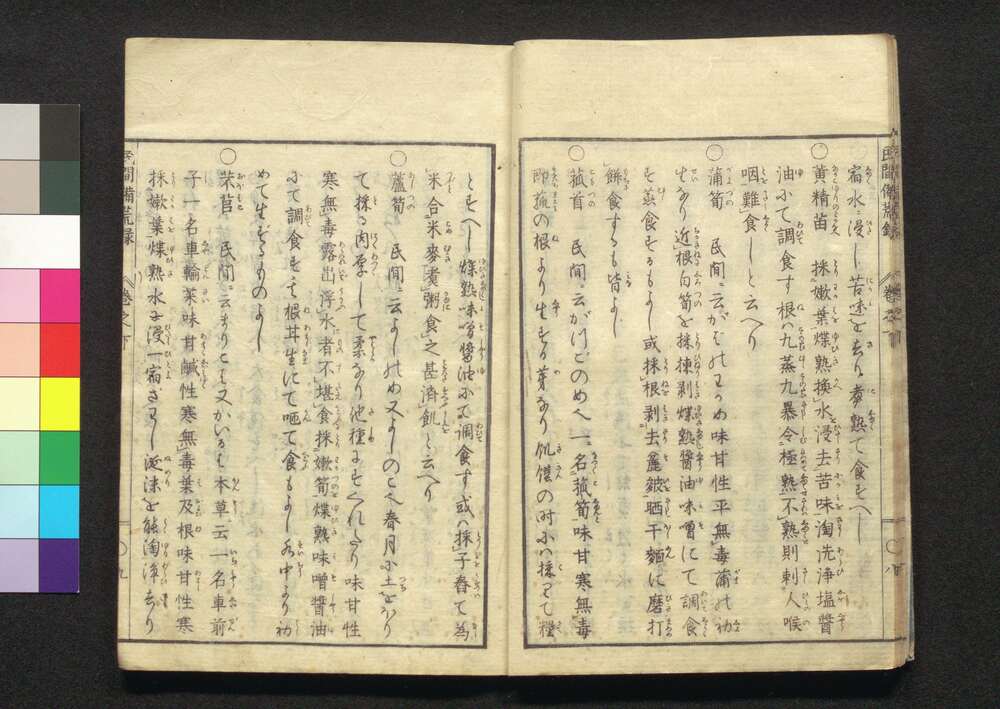 民間備荒録 巻之下 〇八
宿水ニ浸し苦味を去り煮熟て食すべし
〇黄精苗 採嫩葉煠熟換水浸去苦味淘洗浄塩醬
油にて調食す根ハ九蒸九暴令極熟不熟則刺人喉
咽難食しと云へり
〇蒲筍 民間ニ云がまのわかめ味甘性平無毒蒲の初
生なり近根白筍を採揀剥煠熟醬油味噌にて調食
も蒸食するもよし或採根剥去麁皴晒干麺に磨打
餅食するも皆よし
〇菰首 民間ニ云がつごのめ也一名菰筍味甘寒無毒
即菰の根より生する芽なり飢饉の時にハ採りて糧
とすべし煠熟味噌醬油にて調食す或ハ採子舂て為
米合米麥煮粥食之甚済飢と云へり
〇蘆筍 民間ニ云よしのめ又よしのこ也春月に土をほり
て採る肉厚して柔なり池種にすぐれたり味甘性
寒無毒露出浮水者不堪食採嫩筍煠熟味噌醬油
にて調食すべし根甘生にて咂て食もよし水中より初
めて生ずるものよし
〇芣苢 民間ニ云まりこば又かいるば本草ニ云一名車前
子一名車輪菜味甘鹹性寒無毒葉及根味甘性寒
採嫩葉煠熟水に浸一宿さわし涎沫を能淘浄去り
民間備荒録 巻之下 〇九